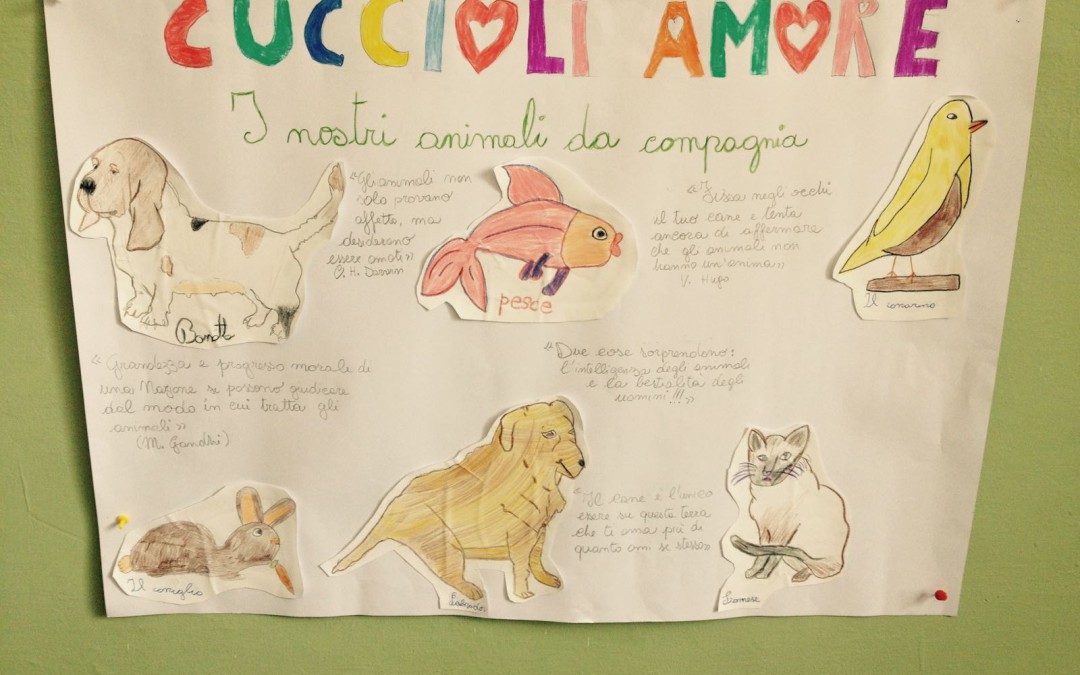 CUCCIOLI AMORE
I nostri animali da compagnia
"Gli animali non
solo provano
affetto, ma
desiderano
essere amati»
"Fissa negli occhi
il tuo cane e tenta
ancora di affermare
che gli animali non
hanno un'anima»
V. Hugo
pesce
Il canarino
"Grandezza e progresso morali di
una Nazione si possono giudicare
dal modo in cui tratta gli
animali»
(M. Gandhi)
"Due cose sorprendono:
l'intelligenza degli animali
e la bestialità degli
uomini!!!»
"Il cane è l'unico
essere su questa terra
che ti ama più di
quanto ami se stesso»
Il coniglio
Labrador
Siamese